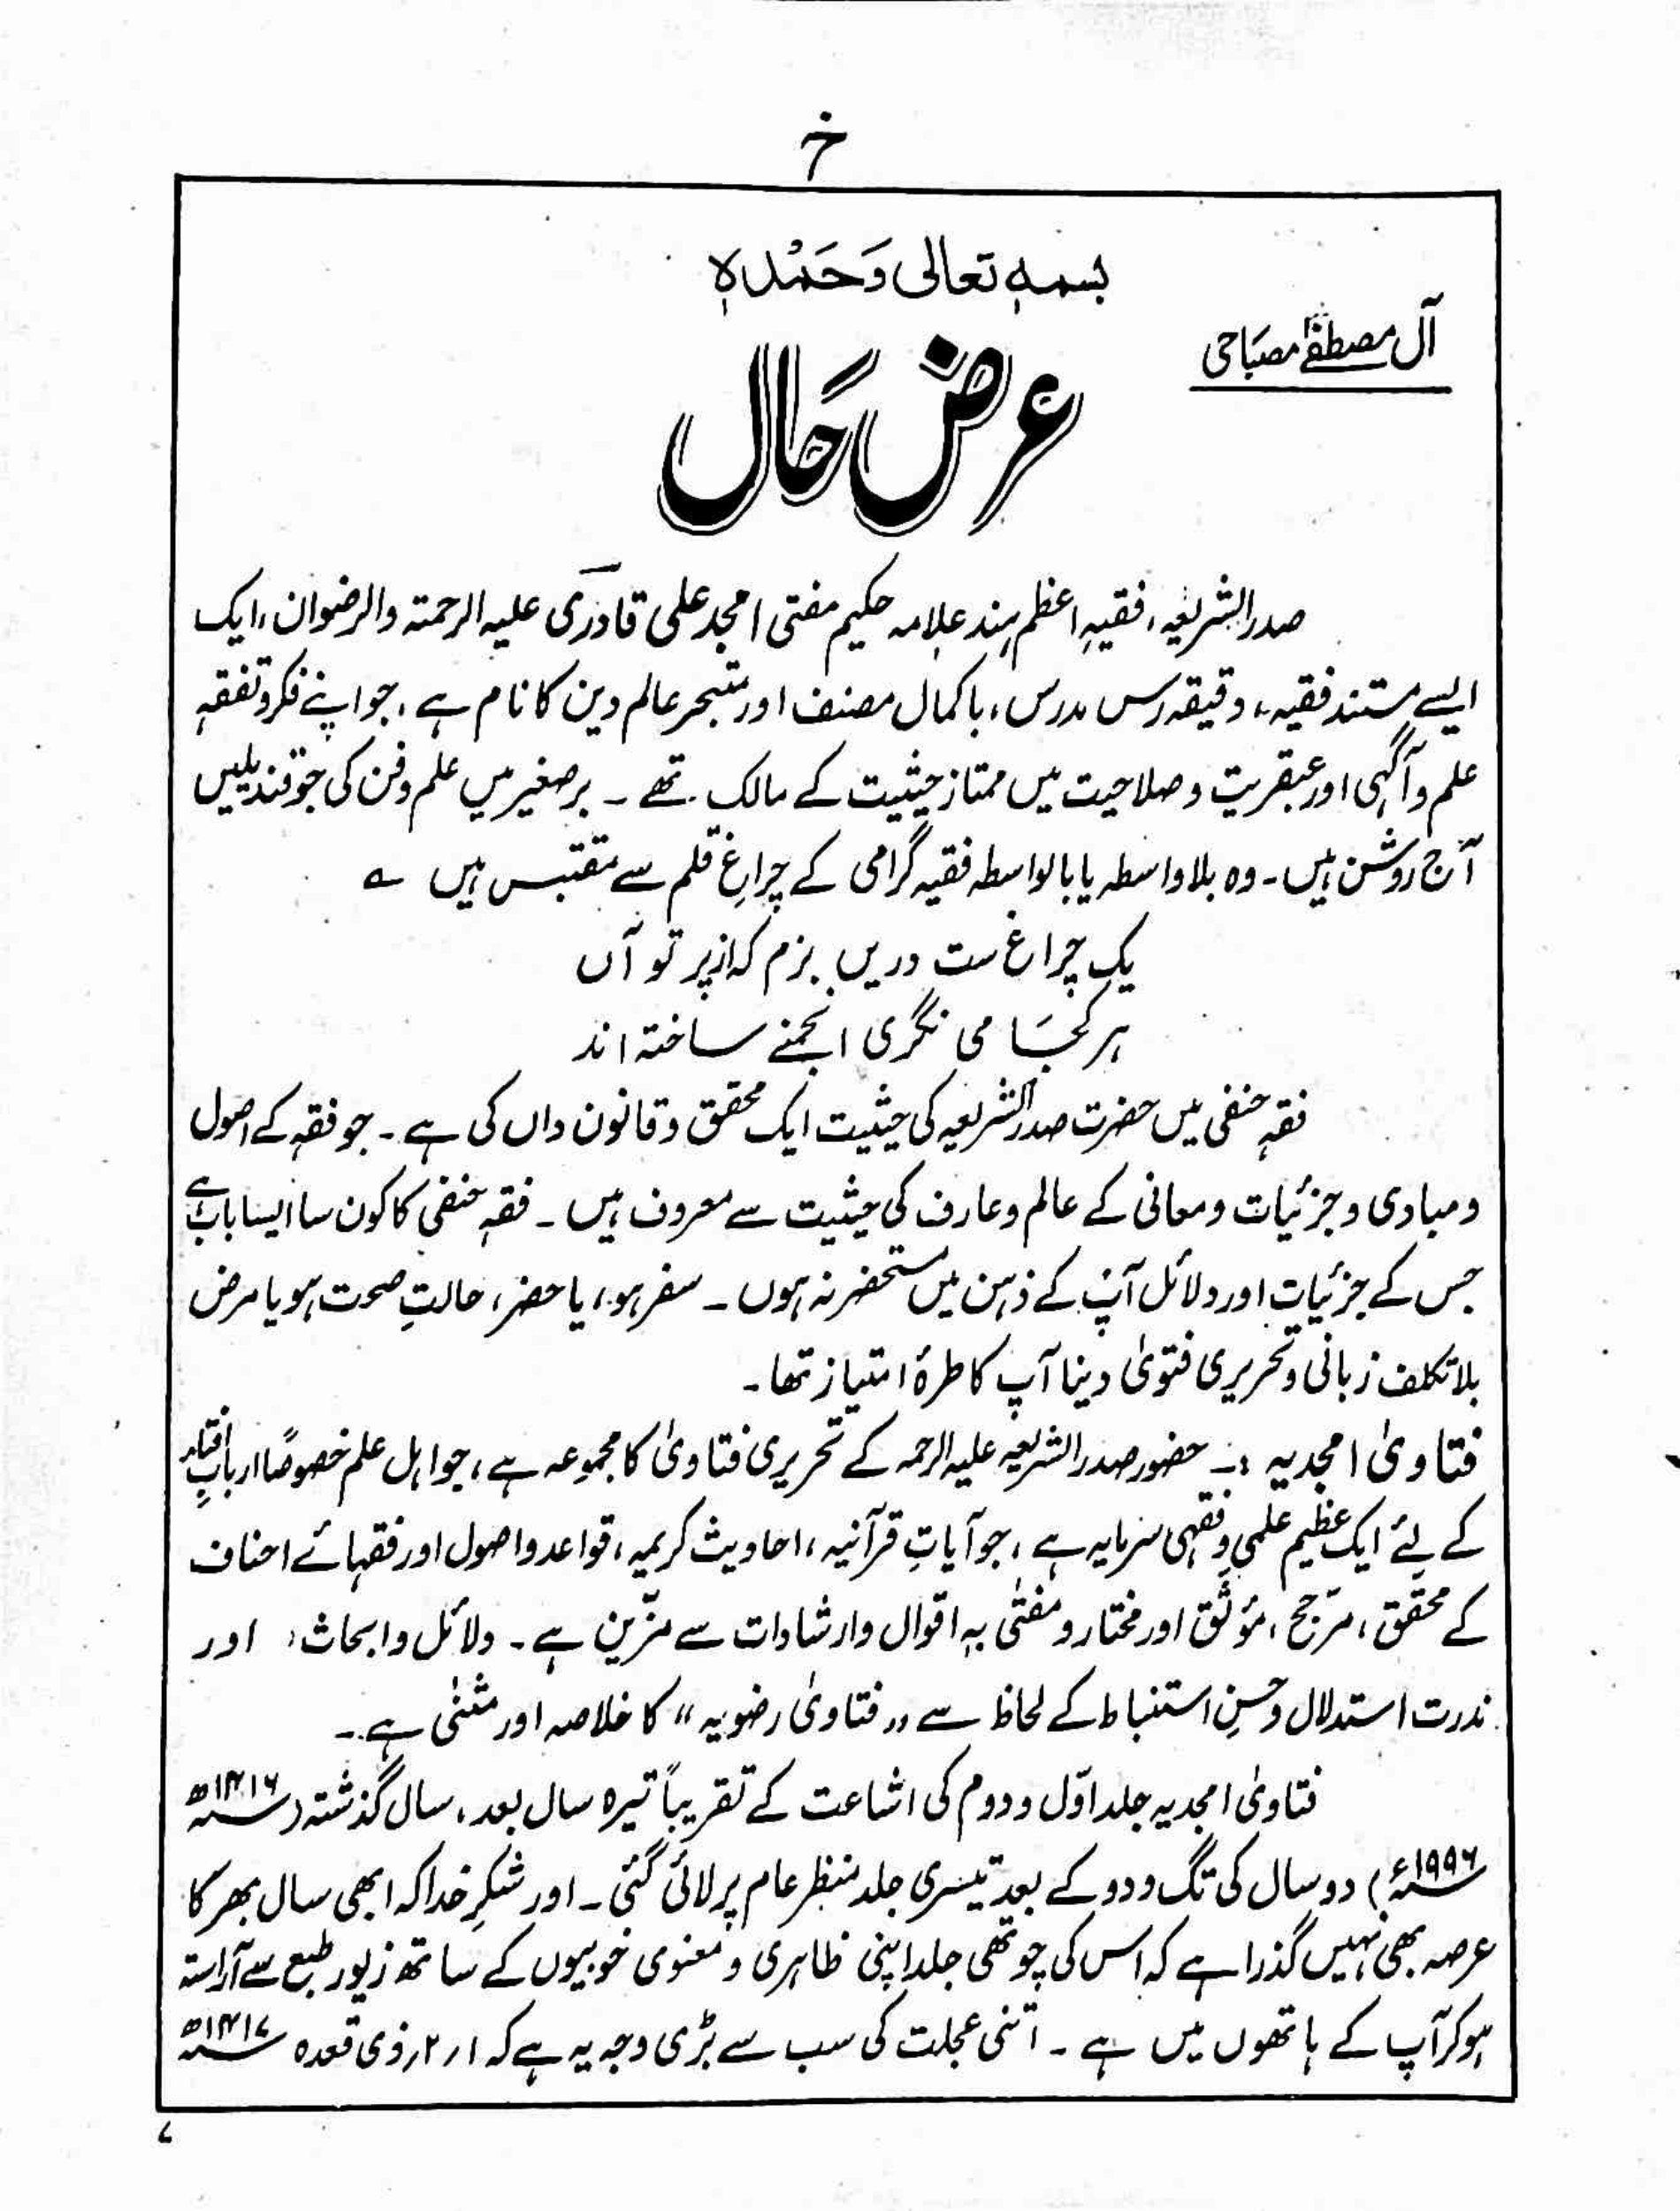 خ
بسمہٖ تعالی وَحَمْدہٖ
آل مصطفےٰ مصباحی
عرض حال
صدرالشریعہ، فقیہِ اعظم ہند علامہ حکیم مفتی امجد علی قادری علیہ الرحمۃ والرضوان، ایک
ایسے مستند فقیہ، دقیقہ رس مدرس، باکمال مصنف اور متبحر عالم دین کا نام ہے، جو اپنے فکر و تفقہ
علم و آگہی اور عبقریت و صلاحیت میں ممتاز حیثیت کے مالک تھے۔ برصغیر میں علم و فن کی جو قندیلیں
آج روشن ہیں۔ وہ بلاواسطہ یا بالواسطہ فقیہ گرامی کے چراغِ قلم سے مقتبس ہیں ؎
یک چراغ ست دریں بزم کہ از پر تو آں
ہر کجَا می نگری انجمنے ساختہ اند
فقہِ حنفی میں حضرت صدرالشریعہ کی حیثیت ایک محقق و قانون داں کی ہے۔ جو فقہ کے اصول
و مبادی و جزئیات و معانی کے عالم و عارف کی حیثیت سے معروف ہیں۔ فقہ حنفی کا کون سا ایسا باب ہے
جس کے جزئیات اور دلائل آپ کے ذہن میں مستحضر نہ ہوں۔ سفر ہو، یا حضر، حالتِ صحت ہو یا مرض
بلا تکلف زبانی و تحریری فتویٰ دینا آپ کا طرۂ امتیاز تھا۔
فتاویٰ امجدیہ :۔ حضور صدرالشریعہ علیہ الرحمہ کے تحریری فتاویٰ کا مجموعہ ہے، جو اہل علم خصوصًا اربابِ افتاء
کے لئے ایک عظیم علمی و فقہی سرمایہ ہے، جو آیاتِ قرآنیہ، احادیث کریمہ، قواعد و اصول اور فقہائے احناف
کے محقق، مرّجح، مؤثّق اور مختار و مفتٰی بہ اقوال و ارشادات سے مزّین ہے۔ دلائل و ابحاث، اور
ندرت استدلال و حسنِ استنباط کے لحاظ سے ,,فتاویٰ رضویہ،، کا خلاصہ اور مثنٰی ہے۔
فتاویٰ امجدیہ جلد اوّل و دوم کی اشاعت کے تقریباً تیرہ سال بعد، سال گذشتہ (سنہ ۱۴۱۶ھ
سنہ ۱۹۹۶ء) دو سال کی تگ و دو کے بعد تیسری جلد منظر عام پر لائی گئی۔ اور شکرِ خدا کہ ابھی سال بھر کا
عرصہ بھی نہیں گذرا ہے کہ اس کی چوتھی جلد اپنی ظاہری و معنوی خوبیوں کے ساتھ زیور طبع سے آراستہ
ہو کر آپ کے ہاتھوں میں ہے۔ اتنی عجلت کی سب سے بڑی وجہ یہ ہے کہ ۱ر۲رذی قعدہ سنہ ۱۴۱۷ھ
۷